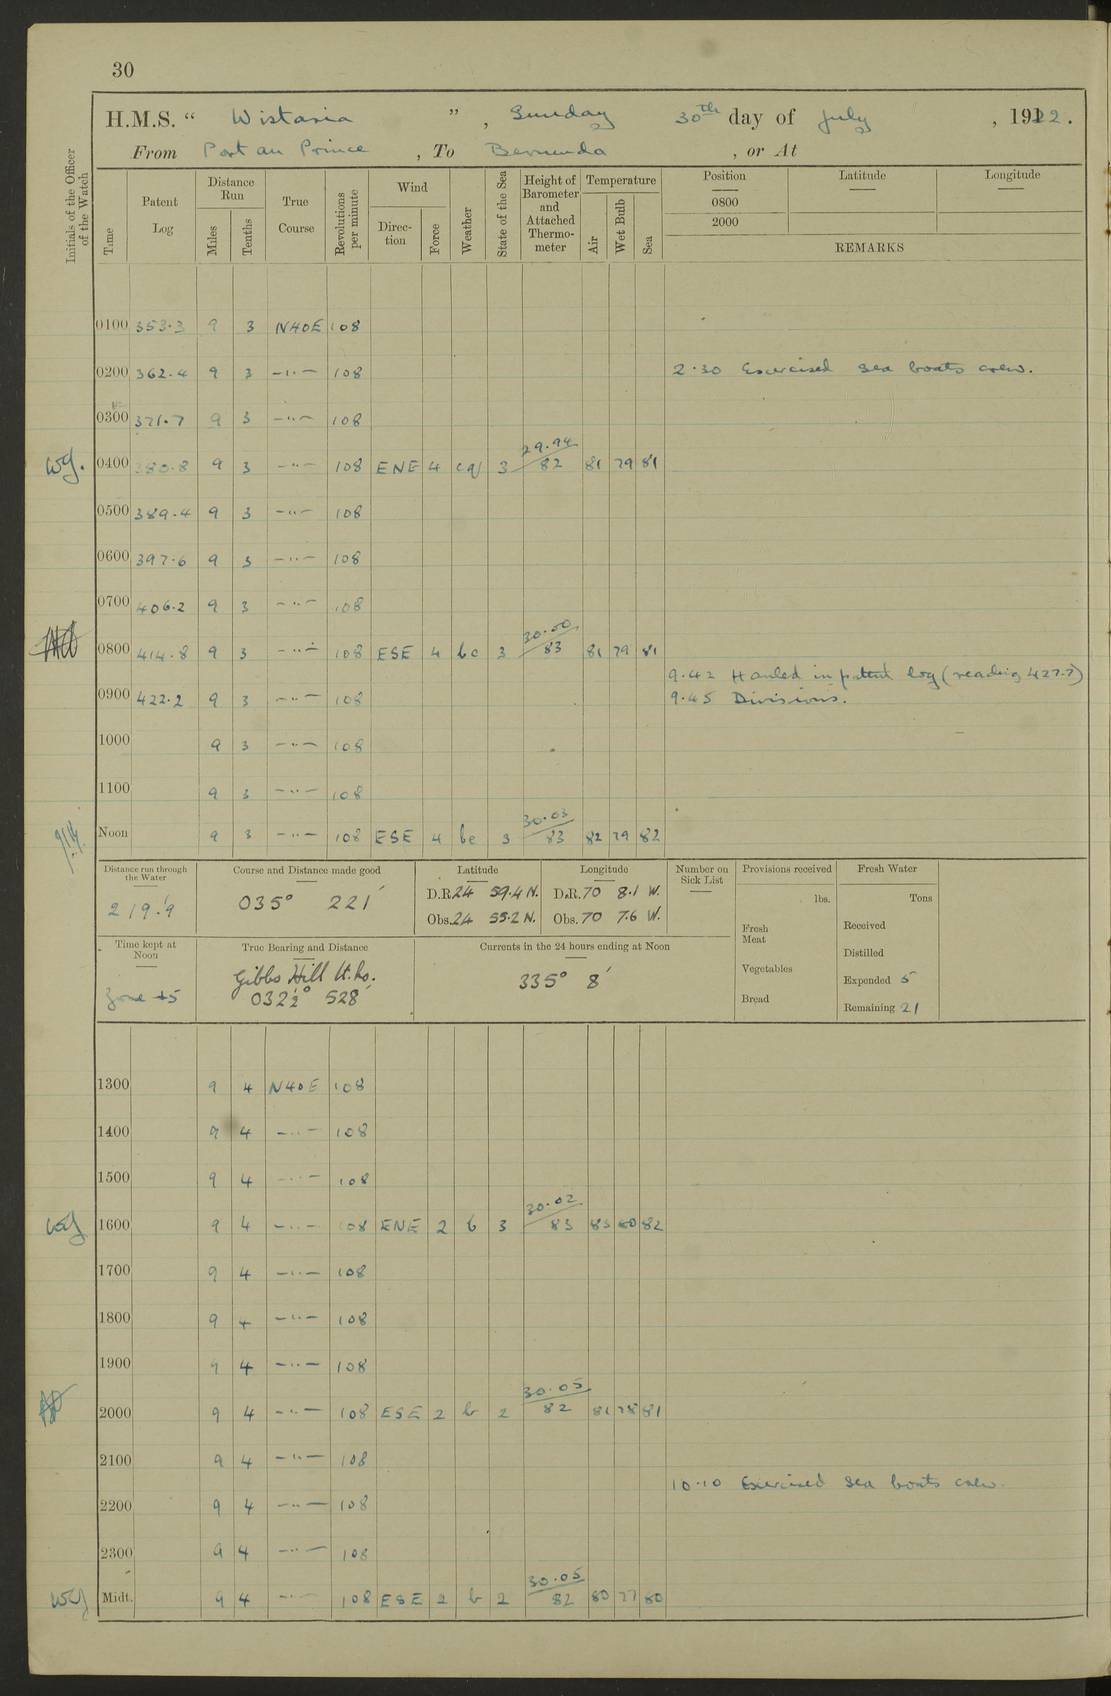 30
H.M.S. “ Wistaria ”, Sunday 30th day of July, 1922.
From Port au Prince, To Bermuda, or At
Initials of the Officer of the Watch
Time
Patent Log
Distance Run
Miles
Tenths
True Course
Revolutions per minute
Wind
Direction
Force
Weather
State of the Sea
Height of Barometer and Attached Thermometer
Temperature
Air
Wet Bulb
Sea
Position
Latitude
Longitude
0800
2000
REMARKS
0100 353.3 9 3 N40E 108
0200 362.4 9 3 —"— 108 2.30 Exercised sea boats crew.
0300 371.7 9 3 —"— 108
0400 380.8 9 3 —"— 108 ENE 4 cq 3 29.94 82 81 79 81
0500 389.4 9 3 —"— 108
0600 397.6 9 3 —"— 108
0700 406.2 9 3 —"— 108
0800 414.8 9 3 —"— 108 ESE 4 bc 3 30.00 83 81 79 81
9.42 Hauled in patent log (reading 427.7)
0900 422.2 9 3 —"— 108 9.45 Divisions.
1000 9 3 —"— 108
1100 9 3 —"— 108
Noon 9 3 —"— 108 ESE 4 bc 3 30.03 83 82 79 82
Distance run through the Water
219.9
Course and Distance made good
035° 221'
Latitude
D.R. 24 59.4 N.
Obs. 24 55.2 N.
Longitude
D.R. 70 8.1 W.
Obs. 70 7.6 W.
Number on Sick List
Provisions received
lbs.
Fresh Meat
Vegetables
Bread
Fresh Water
Tons
Received
Distilled
Expended 5
Remaining 21
Time kept at Noon
Zone +5
True Bearing and Distance
Gibbs Hill Lt. Ho.
032½° 528'
Currents in the 24 hours ending at Noon
335° 8'
1300 9 4 N40E 108
1400 9 4 —"— 108
1500 9 4 —"— 108
1600 9 4 —"— 108 ENE 2 b 3 30.02 83 83 80 82
1700 9 4 —"— 108
1800 9 4 —"— 108
1900 9 4 —"— 108
2000 9 4 —"— 108 ESE 2 b 2 30.05 82 81 78 81
2100 9 4 —"— 108
10.10 Exercised sea boats crew.
2200 9 4 —"— 108
2300 9 4 —"— 108
Midt. 9 4 —"— 108 ESE 2 b 2 30.05 82 80 77 80